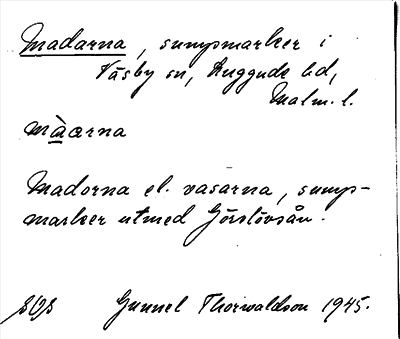 Madarna, sumpmarker i
Väsby sn, Luggude hd,
Malm. l.
màarna
Madorna el. vasarna, sump-
marker utmed Görslövsån.
Gunnel Thorwaldson 1945.